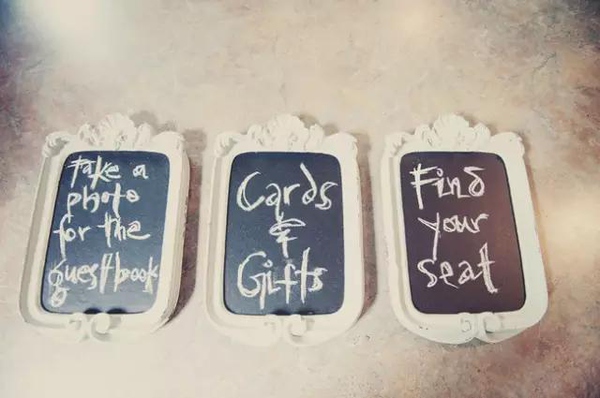 Take a
photo
for the
guestbook
Cards
&
Gifts
Find
your
seat